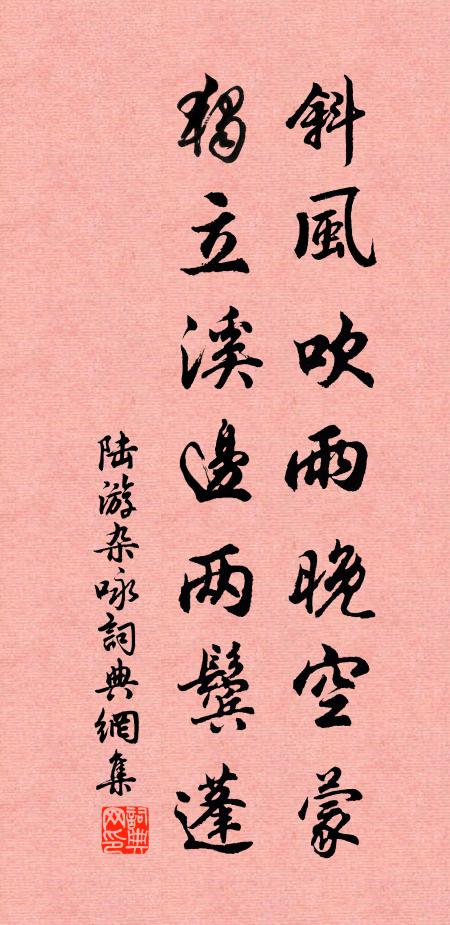 斜風吹雨晚空蒙
獨立溪邊两鬢蓬
陆游杂咏詞典網集
詞典网印